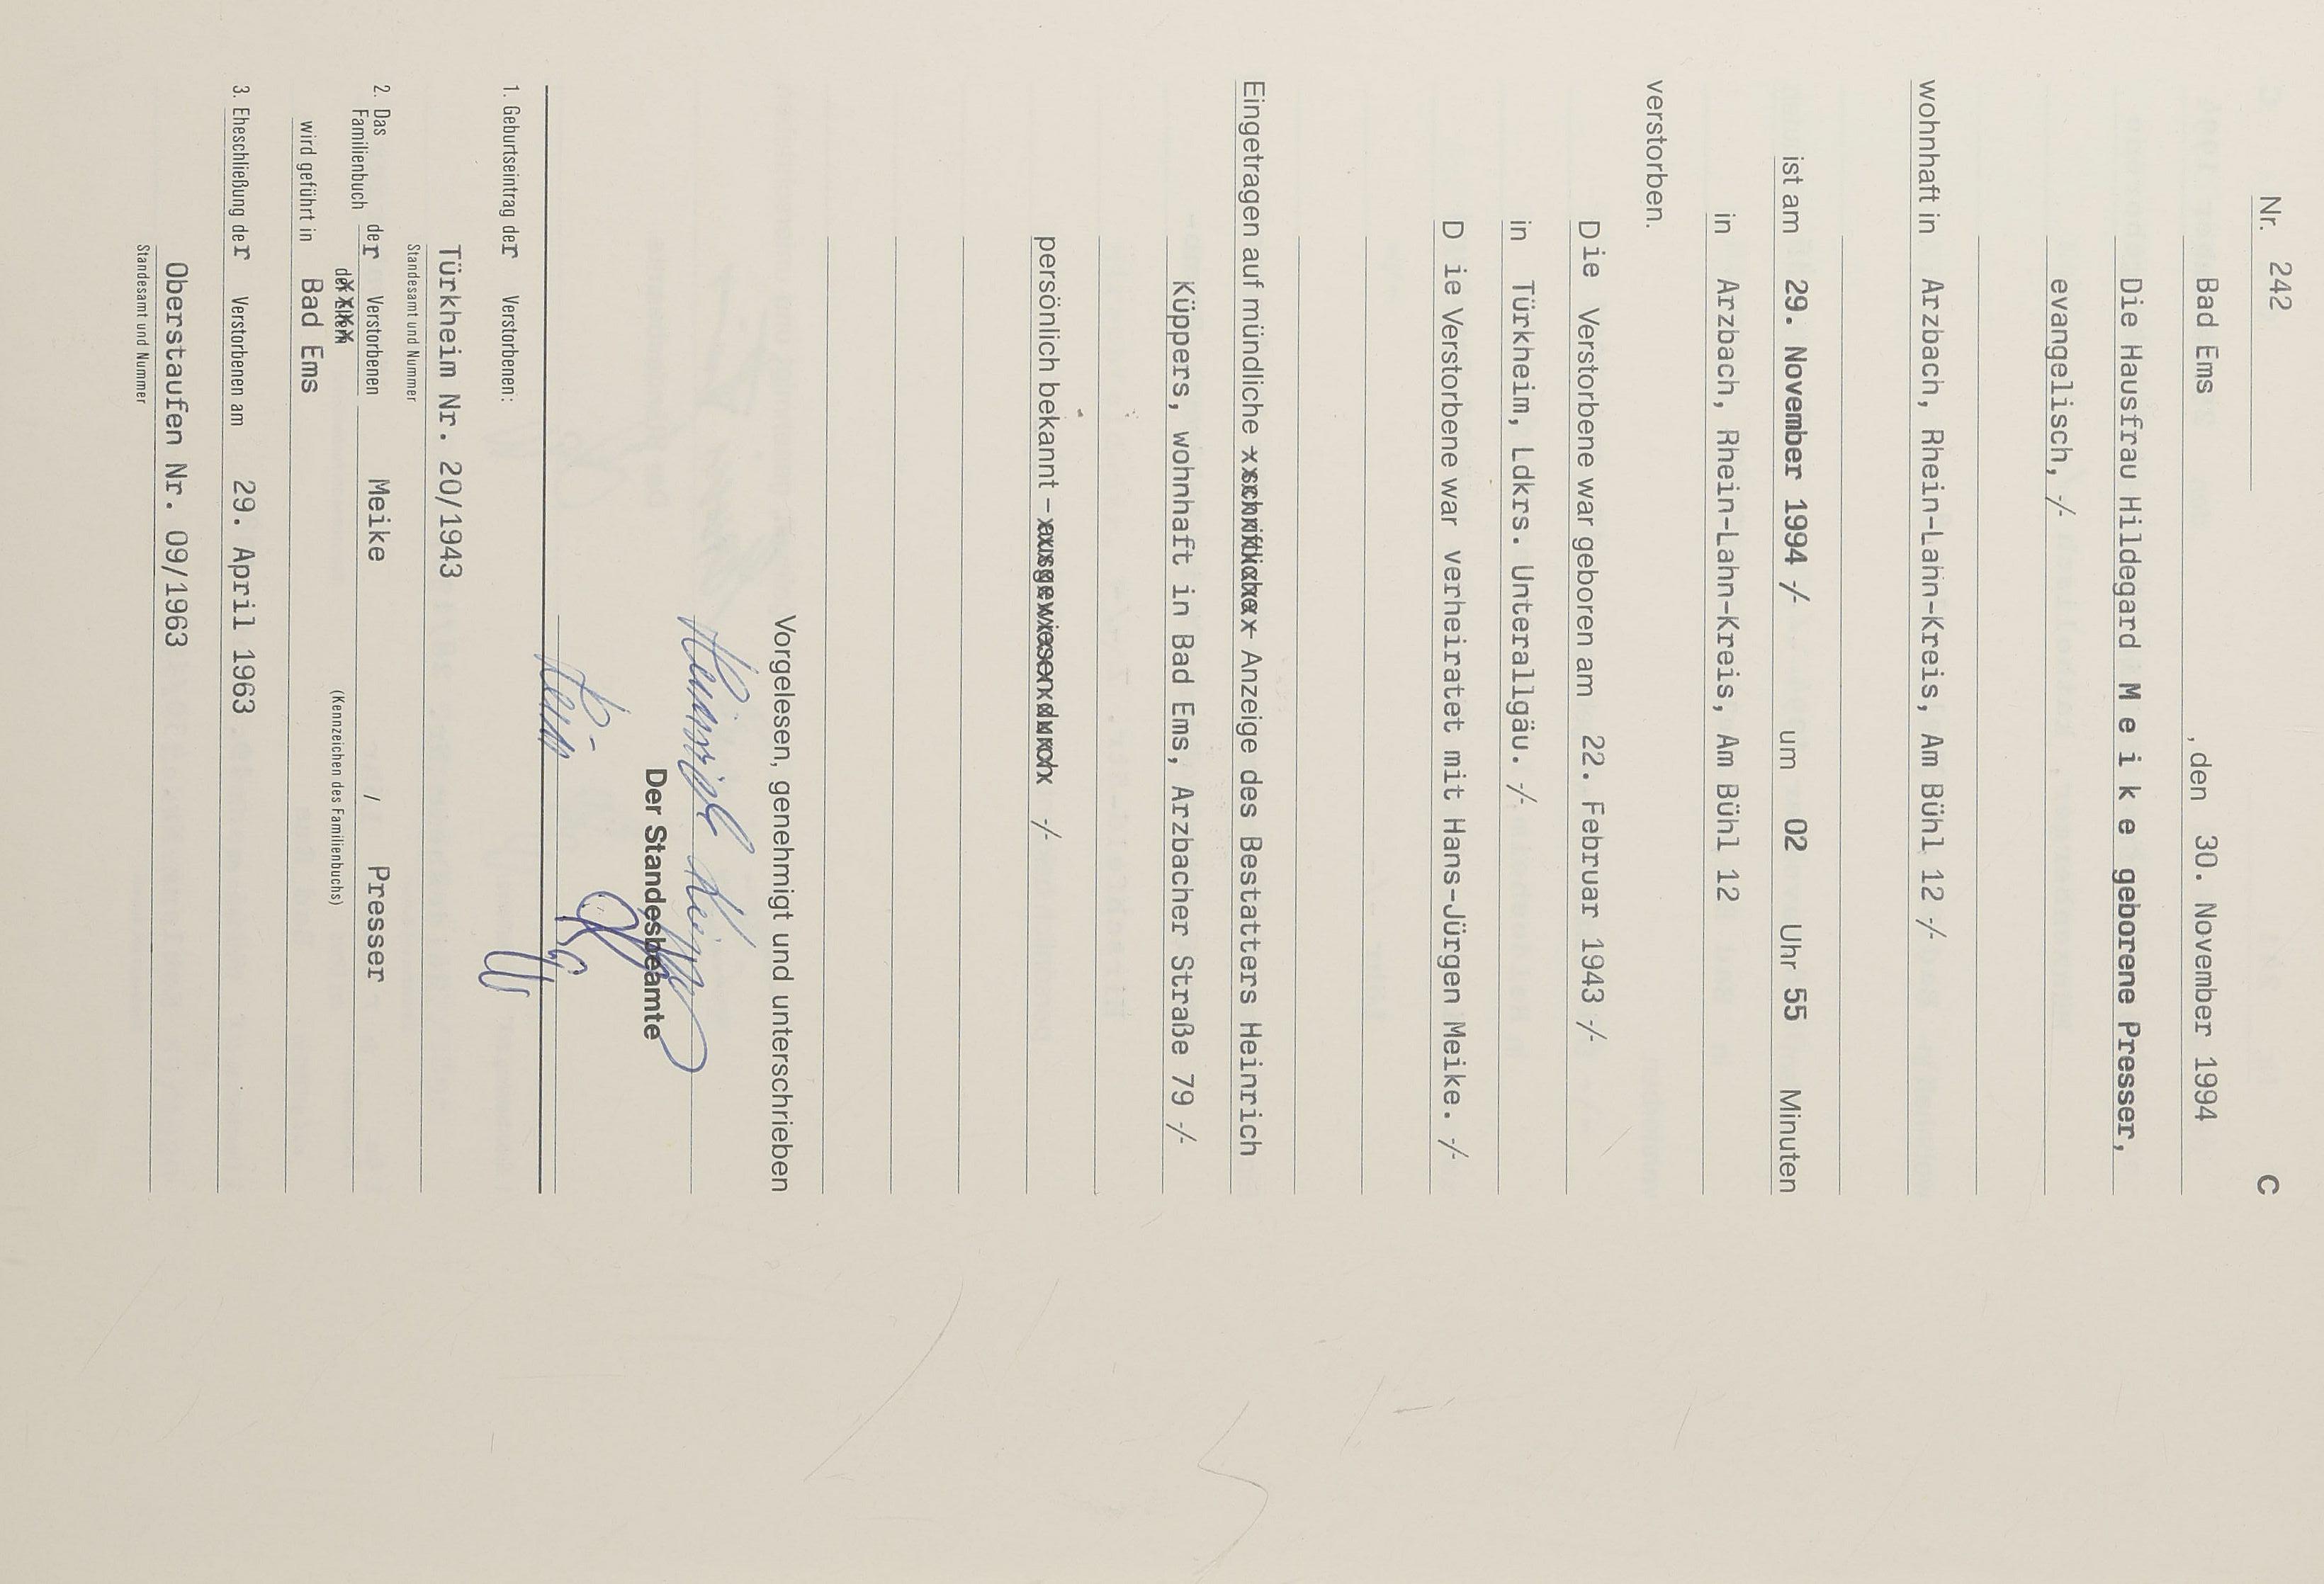 Nr. 242 C
Bad Ems , den 30. November 1994
Die Hausfrau Hildegard M e i k e geborene Presser,
evangelisch, -/-
wohnhaft in Arzbach, Rhein-Lahn-Kreis, Am Bühl 12 -/-
ist am 29. November 1994 -/- um 02 Uhr 55 Minuten
in Arzbach, Rhein-Lahn-Kreis, Am Bühl 12
verstorben.
Die Verstorbene war geboren am 22. Februar 1943 -/-
in Türkheim, Ldkrs. Unterallgäu. -/-
D ie Verstorbene war verheiratet mit Hans-Jürgen Meike. -/-
Eingetragen auf mündliche - schriftliche - Anzeige des Bestatters Heinrich
Küppers, wohnhaft in Bad Ems, Arzbacher Straße 79 -/-
persönlich bekannt - ausgewiesen durch -/-
Vorgelesen, genehmigt und unterschrieben
Der Standesbeamte
1. Geburtseintrag der Verstorbenen:
Türkheim Nr. 20/1943
Standesamt und Nummer
2. Das Familienbuch der Verstorbenen Meike / Presser
der Eltern
(Kennzeichen des Familienbuchs)
wird geführt in Bad Ems
3. Eheschließung der Verstorbenen am 29. April 1963
Oberstaufen Nr. 09/1963
Standesamt und Nummer